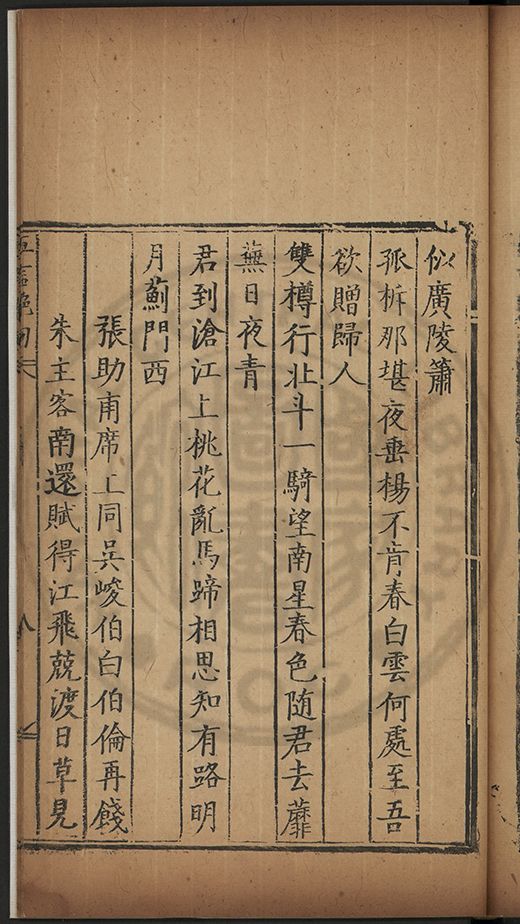 似廣陵簫
孤柝那堪夜垂楊不肯春白雲何處至吾
欲贈歸人
雙樽行北斗一騎望南星春色随君去蘼
蕪日夜青
君到滄江上桃花亂馬蹄相思知有路明
月薊門西
張助甫席上同吳峻伯白伯倫再餞
朱主客南還賦得江飛兢渡日草見
五言絶句
八